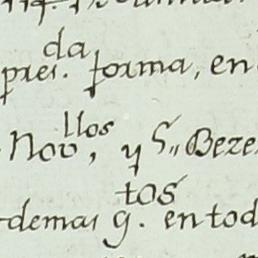 da
pres. forma, en
llos
Nov, y S,, Beze
tos
demas q. en tod